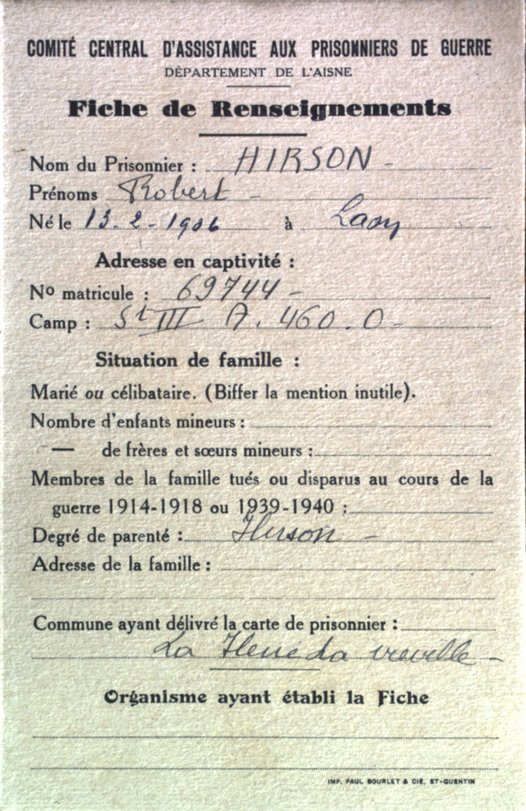 COMITÉ CENTRAL D'ASSISTANCE AUX PRISONNIERS DE GUERRE
DÉPARTEMENT DE L'AISNE
Fiche de Renseignements
Nom du Prisonnier : HIRSON -
Prénoms Robert -
Né le 13-2-1906 à Laon
Adresse en captivité :
No matricule : 69744 -
Camp : St III A. 460.0 -
Situation de famille :
Marié ou célibataire. (Biffer la mention inutile).
Nombre d'enfants mineurs :
— de frères et sœurs mineurs :
Membres de la famille tués ou disparus au cours de la
guerre 1914-1918 ou 1939-1940 :
Degré de parenté : Hirson -
Adresse de la famille :
Commune ayant délivré la carte de prisonnier :
La
Organisme ayant établi la Fiche
IMP. PAUL BOURLET & CIE, ST-QUENTIN